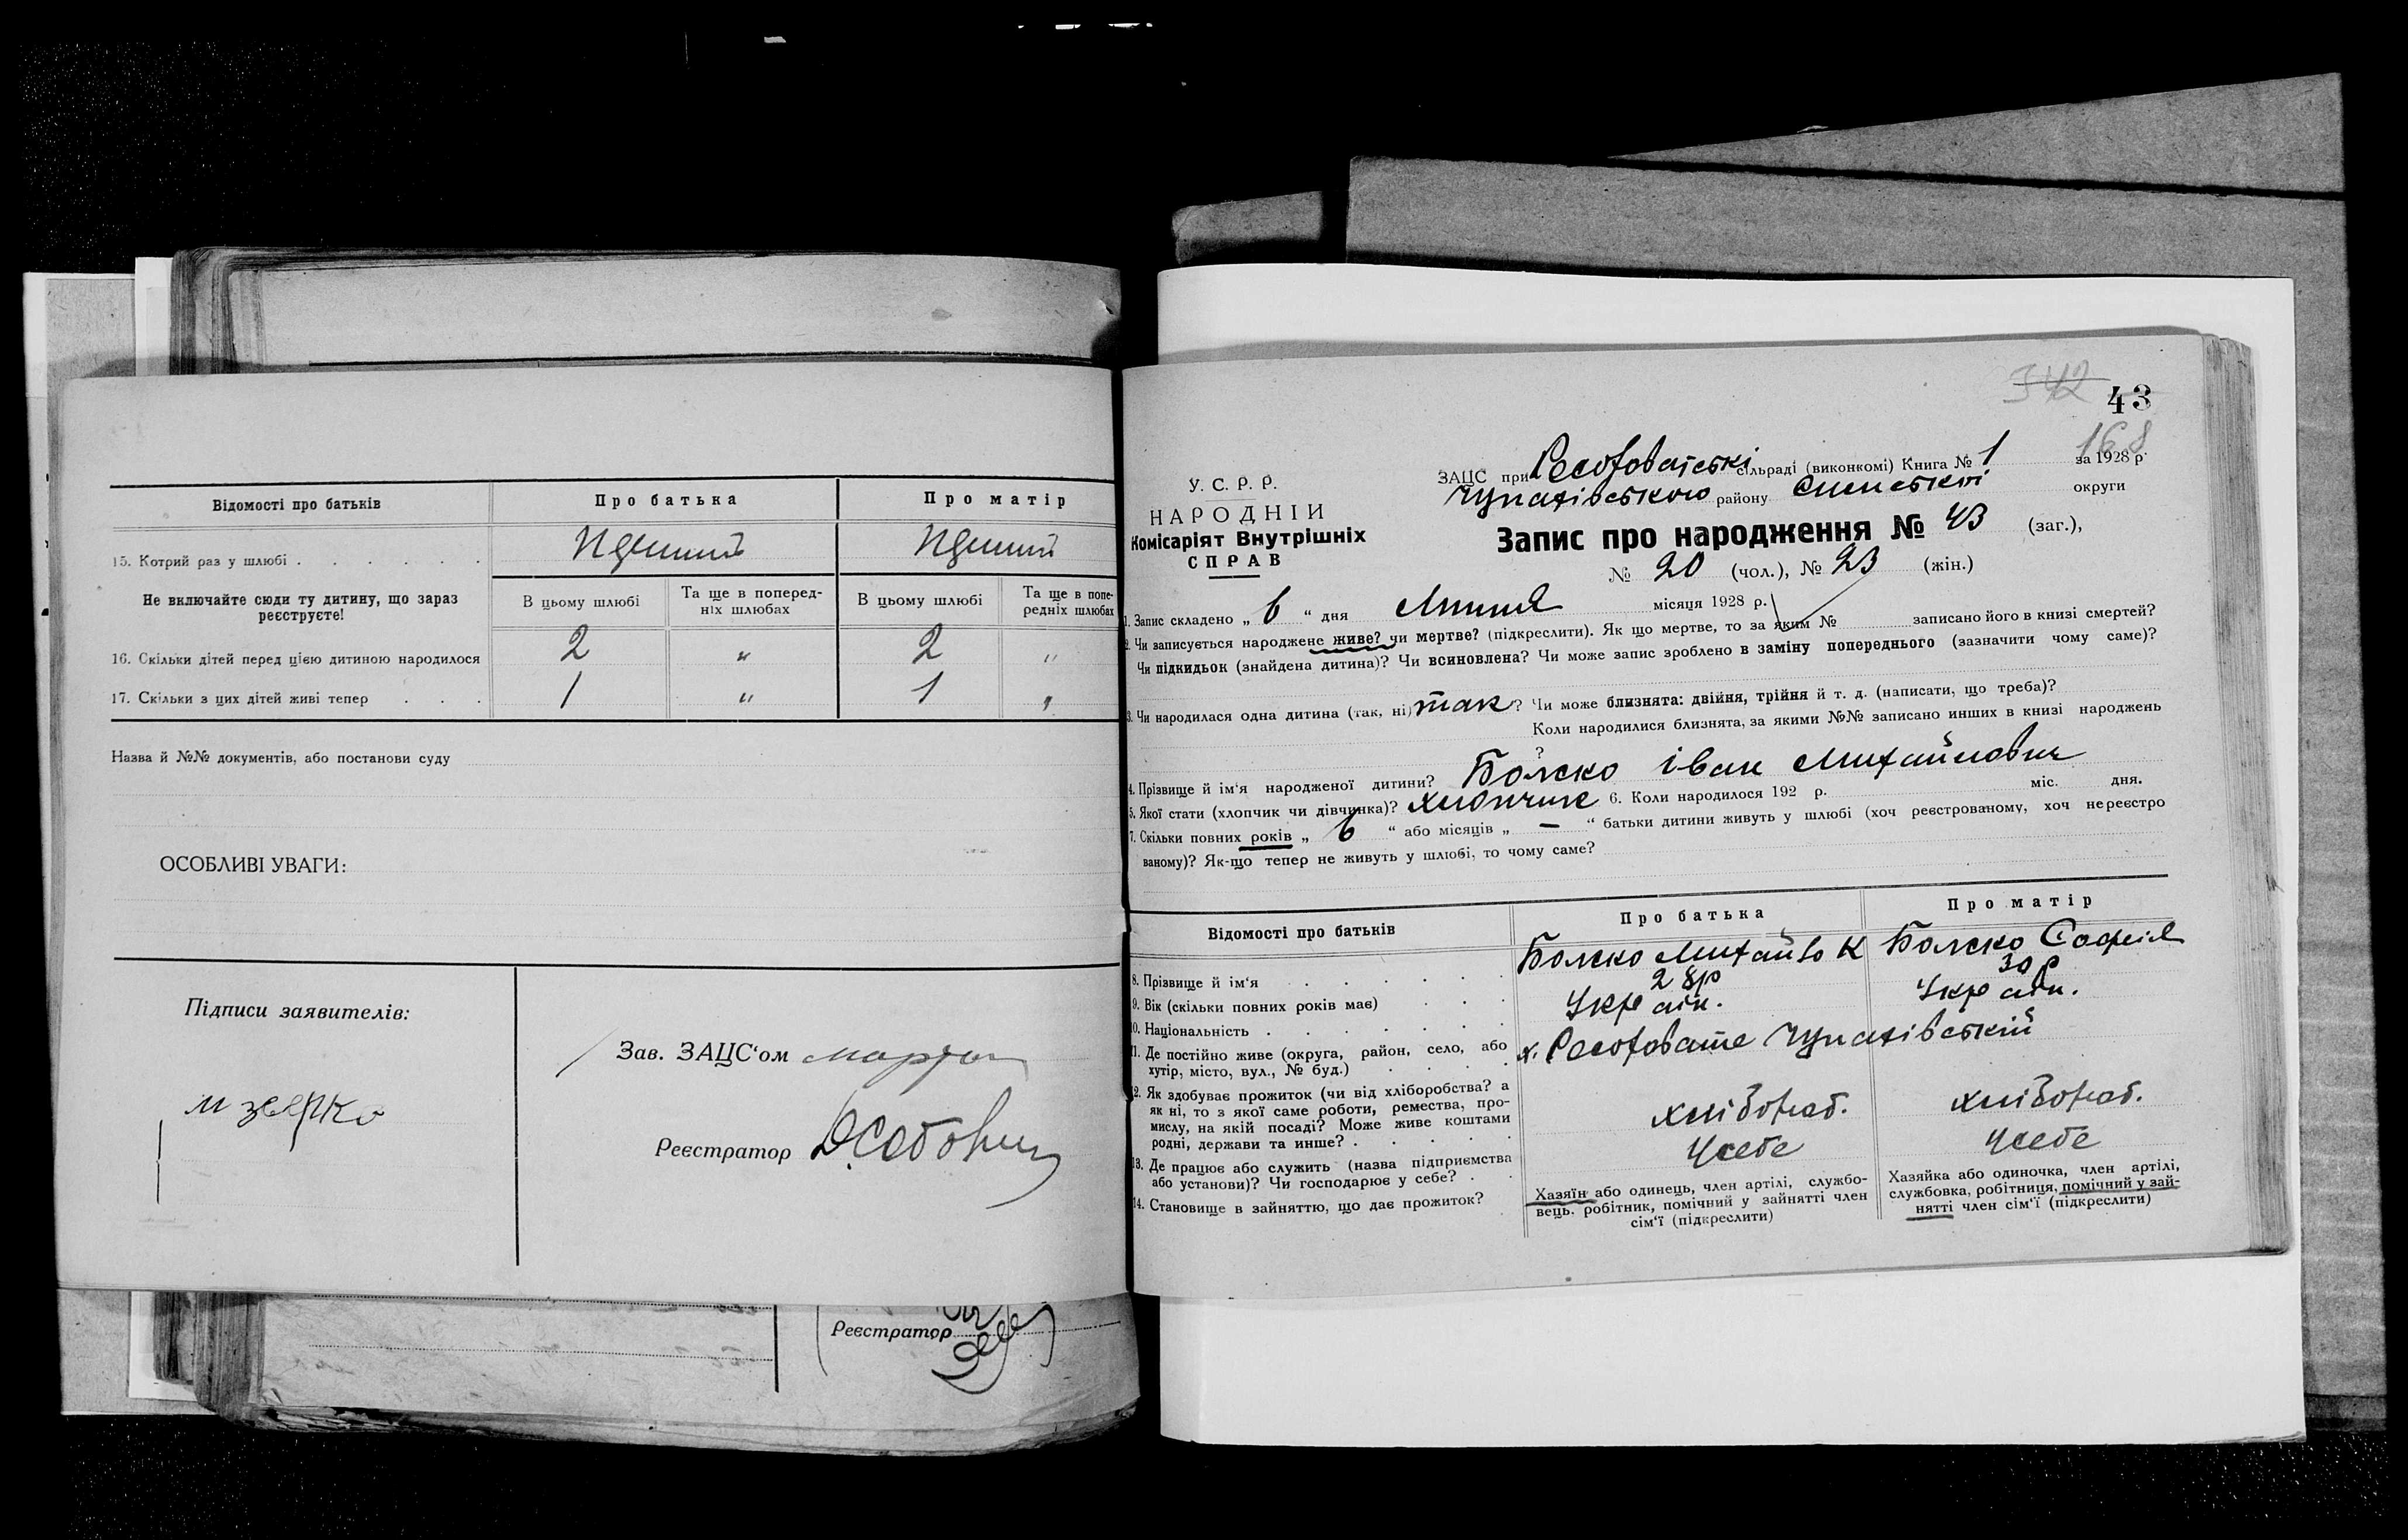 Відомості про батьків
Про батька
Про матір
15. Котрий раз у шлюбі . . . . . .
Не включайте сюди ту дитину, що зараз
реєструєте!
В цьому шлюбі
Та ще в поперед-
ніх шлюбах
В цьому шлюбі
Та ще в попе-
редніх шлюбах
16. Скільки дітей перед цією дитиною народилося
2 „ 2 „
17. Скільки з цих дітей живі тепер . . .
1 „ 1 „
Назва й №№ документів, або постанови суду
ОСОБЛИВІ УВАГИ:
Підписи заявителів:
Зав. ЗАЦС'ом
Реєстратор
Реєстратор
342
43
168
У. С. Р. Р.
НАРОДНІЙ
Комісаріят Внутрішніх
СПРАВ
ЗАЦС при сільраді (виконкомі) Книга № 1 за 1928 р.
Чупахівського району Сумської округи
Запис про народження № 43 (заг.),
№ 20 (чол.), № 23 (жін.)
1. Запис складено „ 6 “ дня Липня місяця 1928 р.
2. Чи записується народжене живе? чи мертве? (підкреслити). Як що мертве, то за яким № записано його в книзі смертей?
Чи підкидьок (знайдена дитина)? Чи всиновлена? Чи може запис зроблено в заміну попереднього (зазначити чому саме)?
3. Чи народилася одна дитина (так, ні) так ? Чи може близнята: двійня, трійня й т. д. (написати, що треба)?
Коли народилися близнята, за якими №№ записано инших в книзі народжень
?
4. Прізвище й ім'я народженої дитини? Іван Михайлович
5. Якої стати (хлопчик чи дівчинка)? хлопчик 6. Коли народилося 192 р. міс. дня.
7. Скільки повних років „ 6 “ або місяців „ — “ батьки дитини живуть у шлюбі (хоч реєстрованому, хоч нереєстро
ваному)? Як-що тепер не живуть у шлюбі, то чому саме?
Відомості про батьків
Про батька
Про матір
8. Прізвище й ім'я . . . . . .
Михайло К
Софія
9. Вік (скільки повних років має) . . .
28р
30 р
10. Національність . . . . . .
Україн.
Україн.
11. Де постійно живе (округа, район, село, або
хутір, місто, вул., № буд.) . . . .
х. Чупахівській
12. Як здобуває прожиток (чи від хліборобства? а
як ні, то з якої саме роботи, ремества, про-
мислу, на якій посаді? Може живе коштами
родні, держави та инше? . . . . .
хлібороб.
хлібороб.
13. Де працює або служить (назва підприємства
або установи)? Чи господарює у себе? . .
Усебе
Усебе
14. Становище в зайняттю, що дає прожиток?
Хазяїн або одинець, член артілі, службо-
вець. робітник, помічний у зайнятті член
сім'ї (підкреслити)
Хазяйка або одиночка, член артілі,
службовка, робітниця, помічний у зай-
нятті член сім'ї (підкреслити)